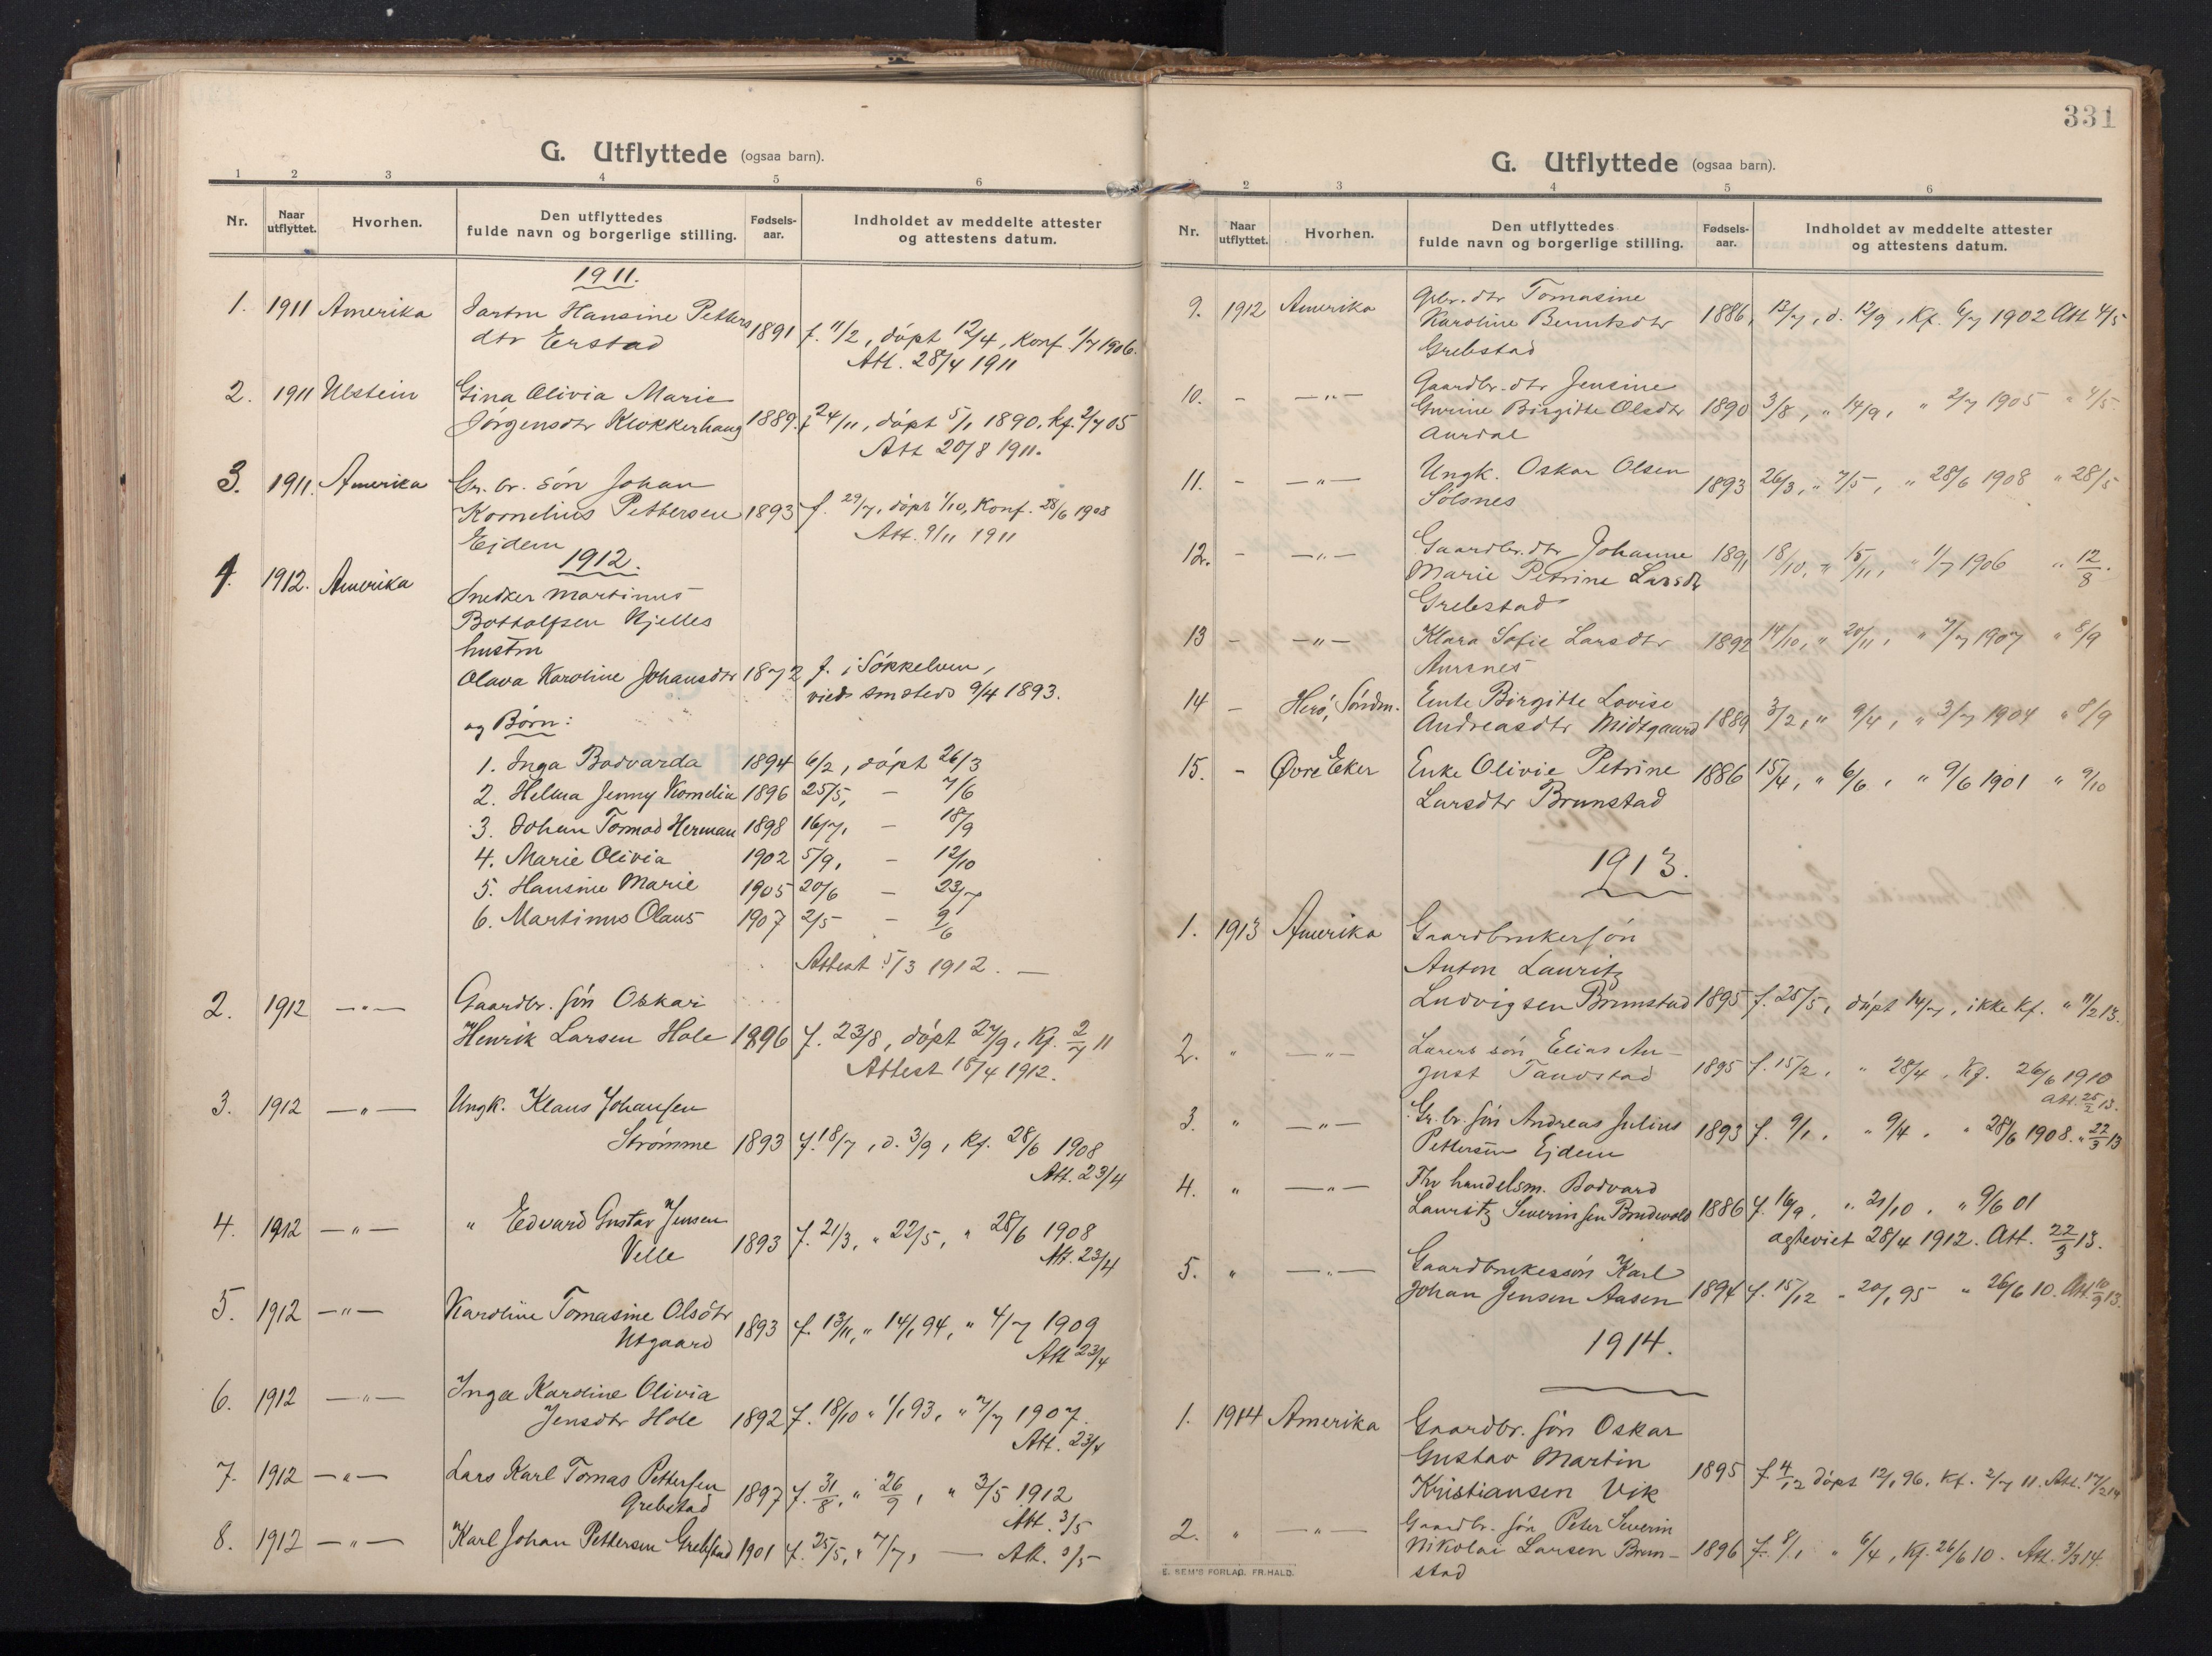 G. Utflyttede (ogsaa barn).
1 2 3 4 5 6
Nr. Naar utflyttet. Hvorhen. Den utflyttedes fulde navn og borgerlige stilling. Fødsels-aar. Indholdet av meddelte attester og attestens datum.
1911.
1. 1911 Amerika Hansine Petters
dtr Erstad 1891 f. 11/2, döpt 12/4, Konf. 1/7 1906.
Att. 28/4 1911
2. 1911 Ulstein Gina Olivia Marie
Jörgensdtr Klokkerhaug 1889. f 24/11, döpt 5/1 1890, kf. 2/7 05
Att 20/8 1911.
3. 1911. Amerika Gr. br. sön Johan
Kornelius Pettersen 1893 f. 29/7, döpt 1/10, Konf. 28/6 1908
Ejdem Att. 9/11 1911
1912.
1. 1912. Amerika Snedker Martinus
Bottolfsen Kjelles
hustru
Olava Karoline Johansdtr 1872 f. i Sökkelven,
viet smsteds 9/4 1893.
og Börn:
1. Inga Bodvarda 1894 6/2, döpt 26/3
2. Helma Jenny Kornelia 1896 25/5, - 7/6
3. Johan Tormod Herman 1898 16/7, - 18/9
4. Marie Olivia 1902 5/9, - 12/10
5. Hansine Marie 1905 20/6 - 23/7
6. Martinus Olaus 1907 2/5 - 9/6
Attest 5/3 1912. —
2. 1912 —"— Gaardbr. sön Oskar
Henrik Larsen Hole 1896 f. 23/8, döpt 27/9, Kf. 2/7 11
Attest 15/4 1912.
3. 1912 —"— Ungk. Klaus Johansen
Strømme 1893 f. 18/7, d. 3/9, Kf. 28/6 1908
Att. 23/4
4. 1912 —"— " Edvard Gustav Jensen
Velle 1893 f. 21/3, " 22/5, " 28/6 1908
Att. 23/4
5. 1912 —"— Karoline Tomasine Olsdtr
Utgaard 1893 f. 13/11, " 14/1 94, " 4/7 1909
Att 23/4
6. 1912 —"— Inga Karoline Olivia
Jensdtr Hole 1892 f. 18/10 " 1/1 93, " 7/7 1907.
Att. 23/4
7. 1912 —"— Lars Karl Tomas Pettersen
Grebstad 1897 f. 31/8, " 26/9, " 3/5 1912
Att. 3/5
8. 1912 —"— Karl Johan Pettersen Grebstad 1901 f. 25/5, " 7/7, — Att. 3/5
331
G. Utflyttede (ogsaa barn).
2 3 4 5 6
Nr. Naar utflyttet. Hvorhen. Den utflyttedes fulde navn og borgerlige stilling. Fødsels-aar. Indholdet av meddelte attester og attestens datum.
9. 1912 Amerika Gbr. dtr Tomasine
Karoline Berntsdtr 1886, 13/7, d. 12/9, Kf. 6/7 1902 Att 4/5
Grebstad
10. - —"— Gaardbr. dtr Jensine
Gurine Birgitte Olsdtr 1890 3/8, " 14/9, " 2/7 1905 " 4/5.
Aurdal
11. - —"— Ungk. Oskar Olsen
Sölsnes 1893 26/3, " 7/5, " 28/6 1908 " 28/5
12. - —"— Gaardbr. dtr Johanne 1891 18/10, " 15/11, " 1/7 1906 " 12/8.
Marie Petrine Larsdtr
Grebstad
13 - —"— Klara Sofie Larsdtr 1892 14/10, " 20/11, " 7/7 1907 " 8/9
Aursnes
14 - Herö, Söndm. Enke Birgitte Lovise
Andreasdtr Midtgaard 1889 3/2, " 9/4, " 3/7 1904 " 8/9
15. - Øvre Eker Enke Olivie Petrine 1886 15/4, " 6/6, " 9/6 1901 " 9/10
Larsdtr Brunstad
1913.
1. 1913 Amerika Gaardbrukersön
Anton Lauritz
Ludvigsen Brunstad 1895 f. 25/5, döpt 14/7, ikke kf. " 11/2 13.
2. " —"— Lærers sön Elias Au-
gust Tandstad 1895 f. 15/2, " 28/4, Kf. 26/6 1910
Att. 25/2 13.
3. " —"— Gr. br. sön Andreas Julius 1893 f. 9/1, " 9/4, " 28/6 1908. " 22/3 13
Pettersen Ejdem
4. " —"— Fhv handelsm. Bodvard
Lauritz Severinsen Brudevold 1886 f. 16/9, " 21/10, " 9/6 01
egteviet 28/4 1912. Att. 22/3 13.
5. " —"— Gaardbrukersön Karl
Johan Jensen Aasen 1894 f. 15/12 " 20/1 95 " 26/6 10. Att. 10/9 13.
1914.
1. 1914 Amerika Gaardbr. sön Oskar
Gustav Martin
Kristiansen Vik 1895 f. 4/12 döpt 12/1 96. Kf. 2/7 11. Att. 17/2 14
2. " —"— Gaardbr. sön Peter Severin
Nikolai Larsen Brun- 1896 f. 8/1 " 6/4, Kf. 26/6 10. Att. 3/3 14.
stad
E. SEM'S FORLAG. FR.HALD.